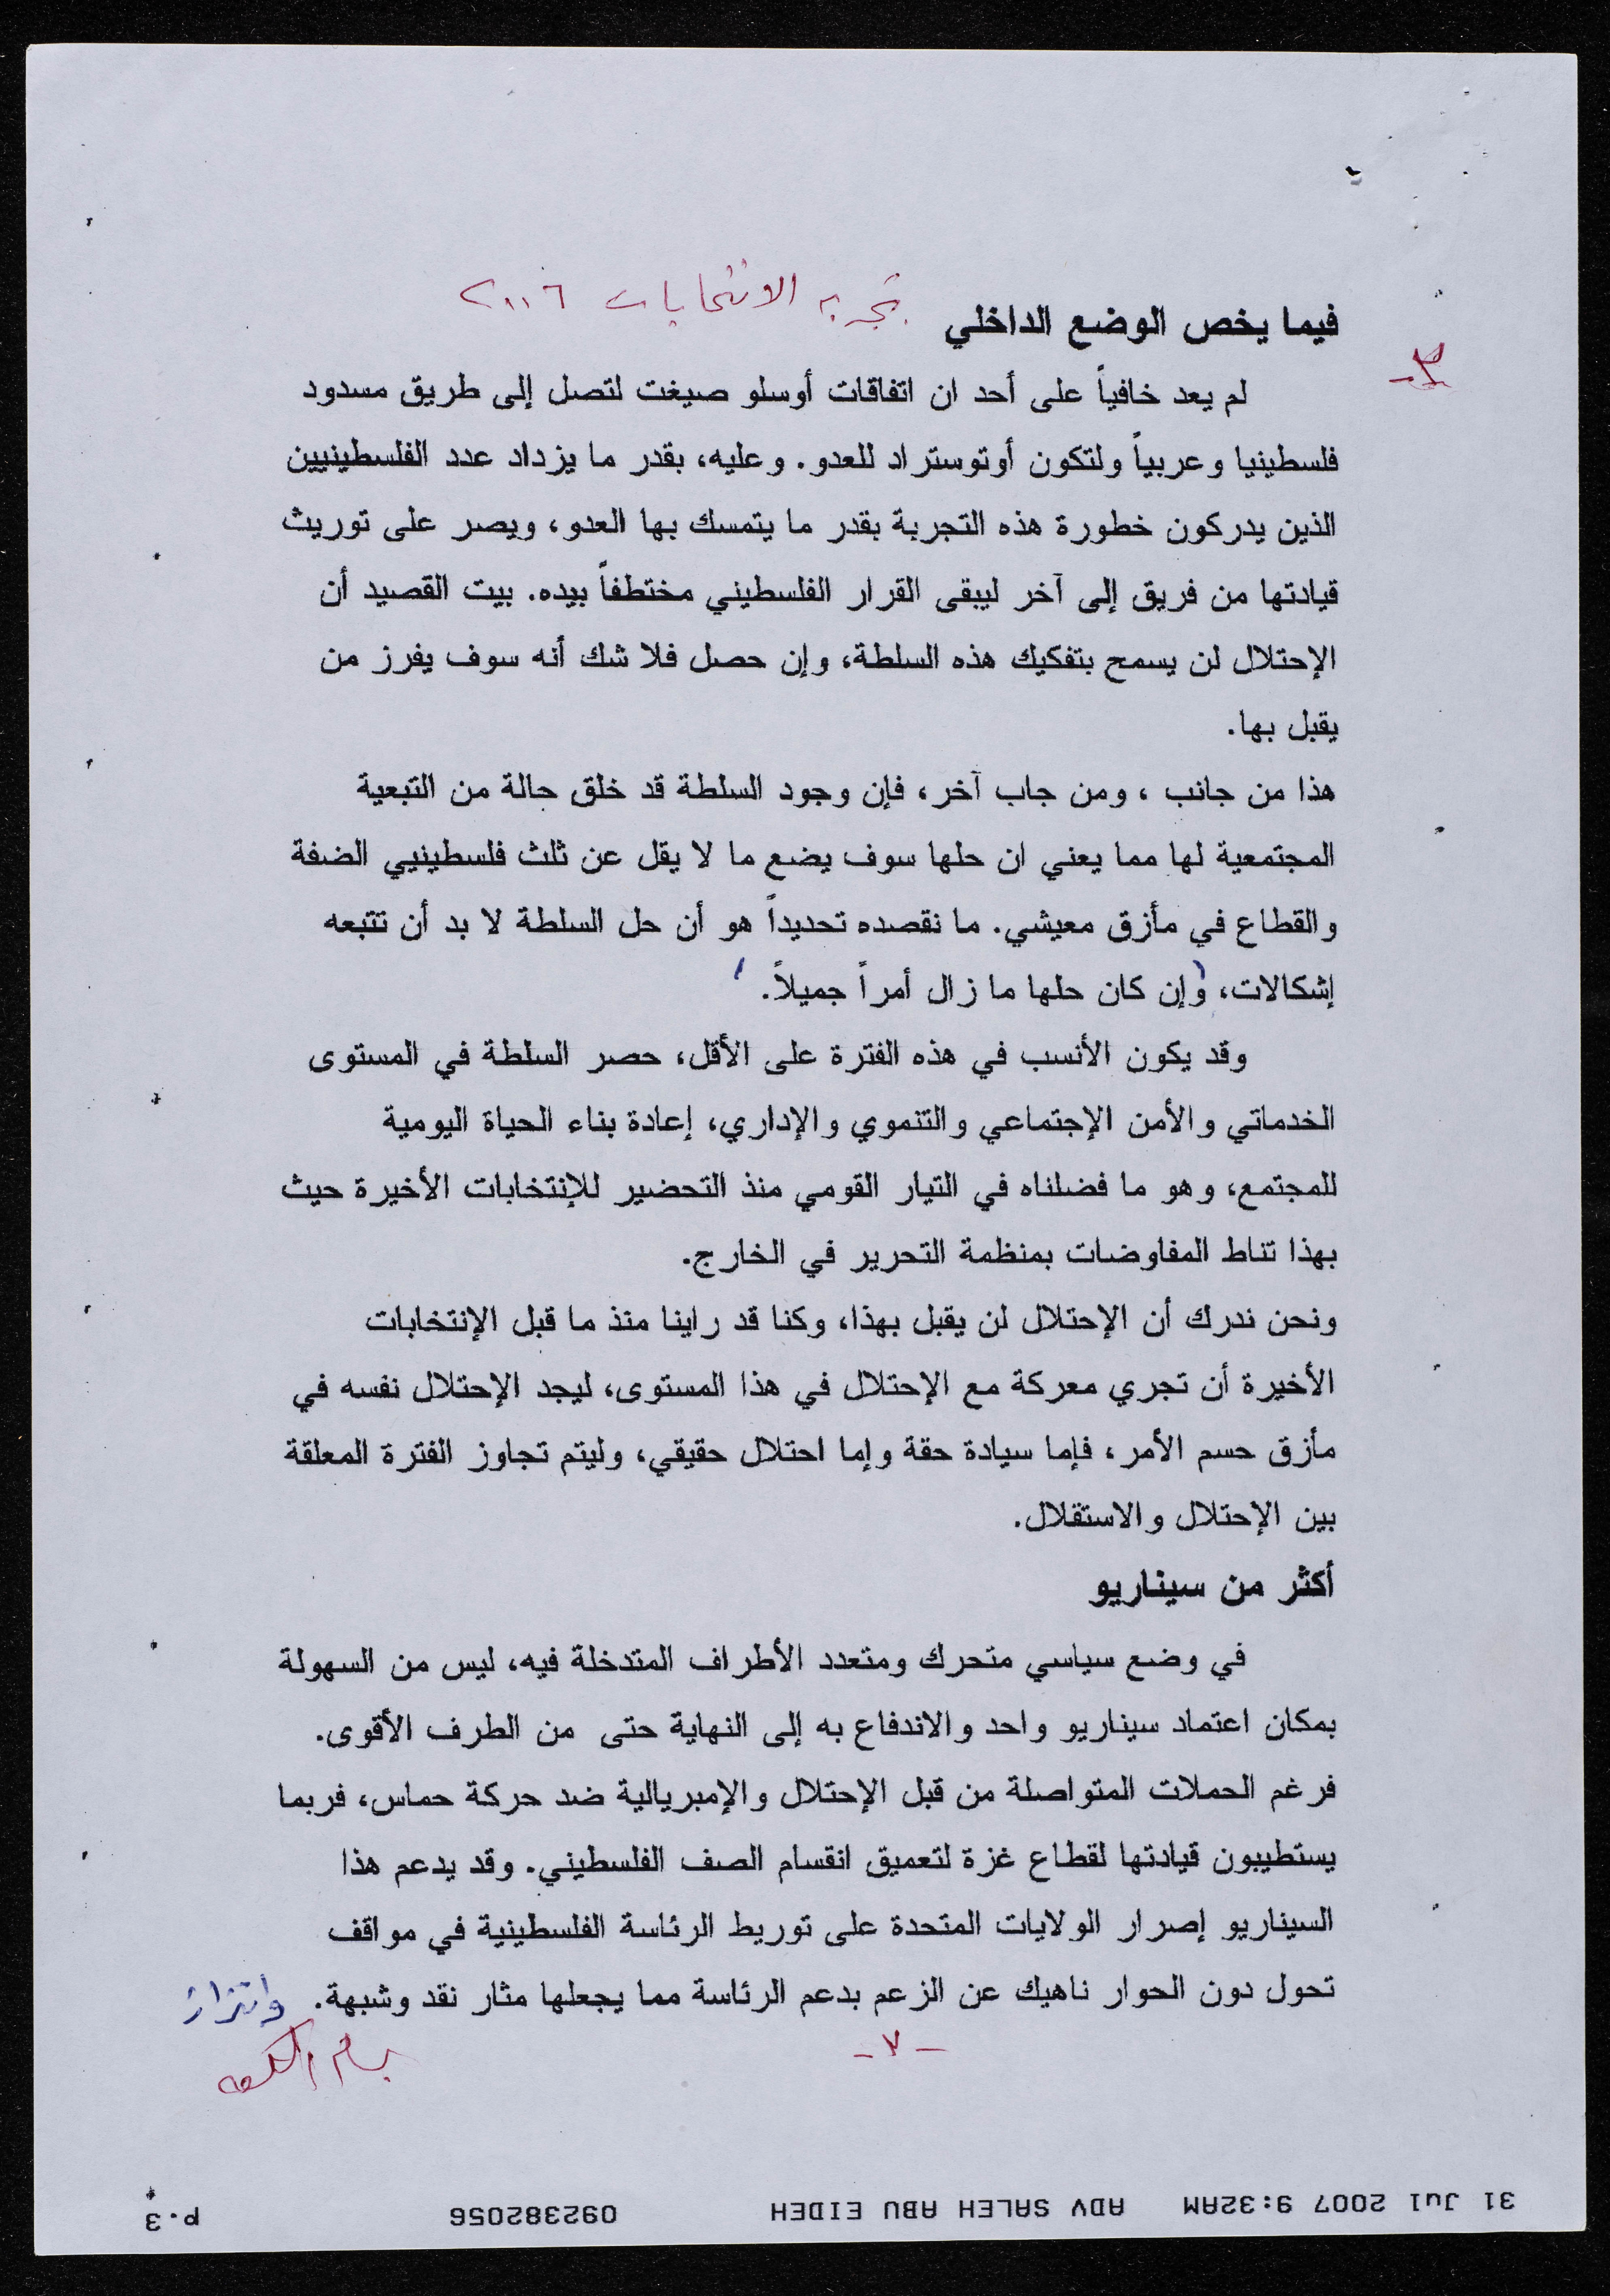 تجربة الانتخابات ٢٠٠٦
فيما يخص الوضع الداخلي
٣-
لم يعد خافياً على أحد ان اتفاقات أوسلو صيغت لتصل إلى طريق مسدود
فلسطينيا وعربياً ولتكون أوتوستراد للعدو. وعليه، بقدر ما يزداد عدد الفلسطينيين
الذين يدركون خطورة هذه التجربة بقدر ما يتمسك بها العدو، ويصر على توريث
قيادتها من فريق إلى آخر ليبقى القرار الفلسطيني مختطفاً بيده. بيت القصيد أن
الإحتلال لن يسمح بتفكيك هذه السلطة، وإن حصل فلا شك أنه سوف يفرز من
يقبل بها.
هذا من جانب ، ومن جاب آخر، فإن وجود السلطة قد خلق حالة من التبعية
المجتمعية لها مما يعني ان حلها سوف يضع ما لا يقل عن ثلث فلسطينيي الضفة
والقطاع في مأزق معيشي. ما نقصده تحديداً هو أن حل السلطة لا بد أن تتبعه
إشكالات، (وإن كان حلها ما زال أمراً جميلاً. )
وقد يكون الأنسب في هذه الفترة على الأقل، حصر السلطة في المستوى
الخدماتي والأمن الإجتماعي والتنموي والإداري، إعادة بناء الحياة اليومية
للمجتمع، وهو ما فضلناه في التيار القومي منذ التحضير للإنتخابات الأخيرة حيث
بهذا تناط المفاوضات بمنظمة التحرير في الخارج.
ونحن ندرك أن الإحتلال لن يقبل بهذا، وكنا قد راينا منذ ما قبل الإنتخابات
الأخيرة أن تجري معركة مع الإحتلال في هذا المستوى، ليجد الإحتلال نفسه في
مأزق حسم الأمر، فإما سيادة حقة وإما احتلال حقيقي، وليتم تجاوز الفترة المعلقة
بين الإحتلال والاستقلال.
أكثر من سيناريو
في وضع سياسي متحرك ومتعدد الأطراف المتدخلة فيه، ليس من السهولة
بمكان اعتماد سيناريو واحد والاندفاع به إلى النهاية حتى من الطرف الأقوى.
فرغم الحملات المتواصلة من قبل الإحتلال والإمبريالية ضد حركة حماس، فربما
يستطيبون قيادتها لقطاع غزة لتعميق انقسام الصف الفلسطيني. وقد يدعم هذا
السيناريو إصرار الولايات المتحدة على توريط الرئاسة الفلسطينية في مواقف
تحول دون الحوار ناهيك عن الزعم بدعم الرئاسة مما يجعلها مثار نقد وشبهة.
-٧-
31 Jul 2007 9:32AM ADV SALEH ABU EIDEH 092382056 p.3